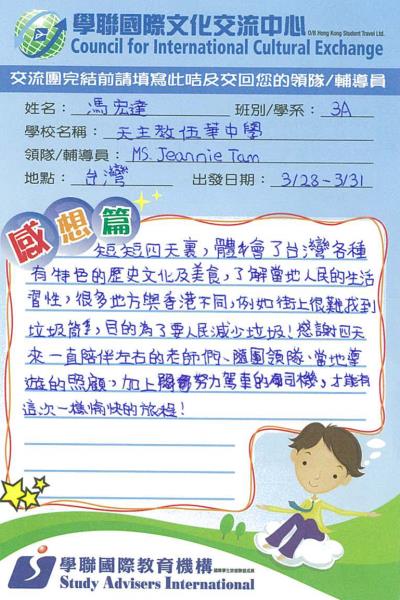 學聯國際文化交流中心
O/B Hong Kong Student Travel Ltd.
Council for International Cultural Exchange
交流團完結前請填寫此咭及交回您的領隊/輔導員
姓名： 馮宏達 班別/學系： 3A
學校名稱： 天主教伍華中學
領隊/輔導員： MS. Jeannie Tam
地點： 台灣 出發日期： 3/28-3/31
感想篇
短短四天裏，體會了台灣各種
有特色的歷史文化及美食，了解當地人民的生活
習性，很多地方與香港不同，例如街上很難找到
垃圾筒，目的為了要人民減少垃圾！感謝四天
來一直陪伴左右的老師們、隨團領隊、當地導
遊的照顧，加上努力駕車的司機，才能有
這次一樣愉快的旅程！
學聯國際教育機構
Study Advisers International